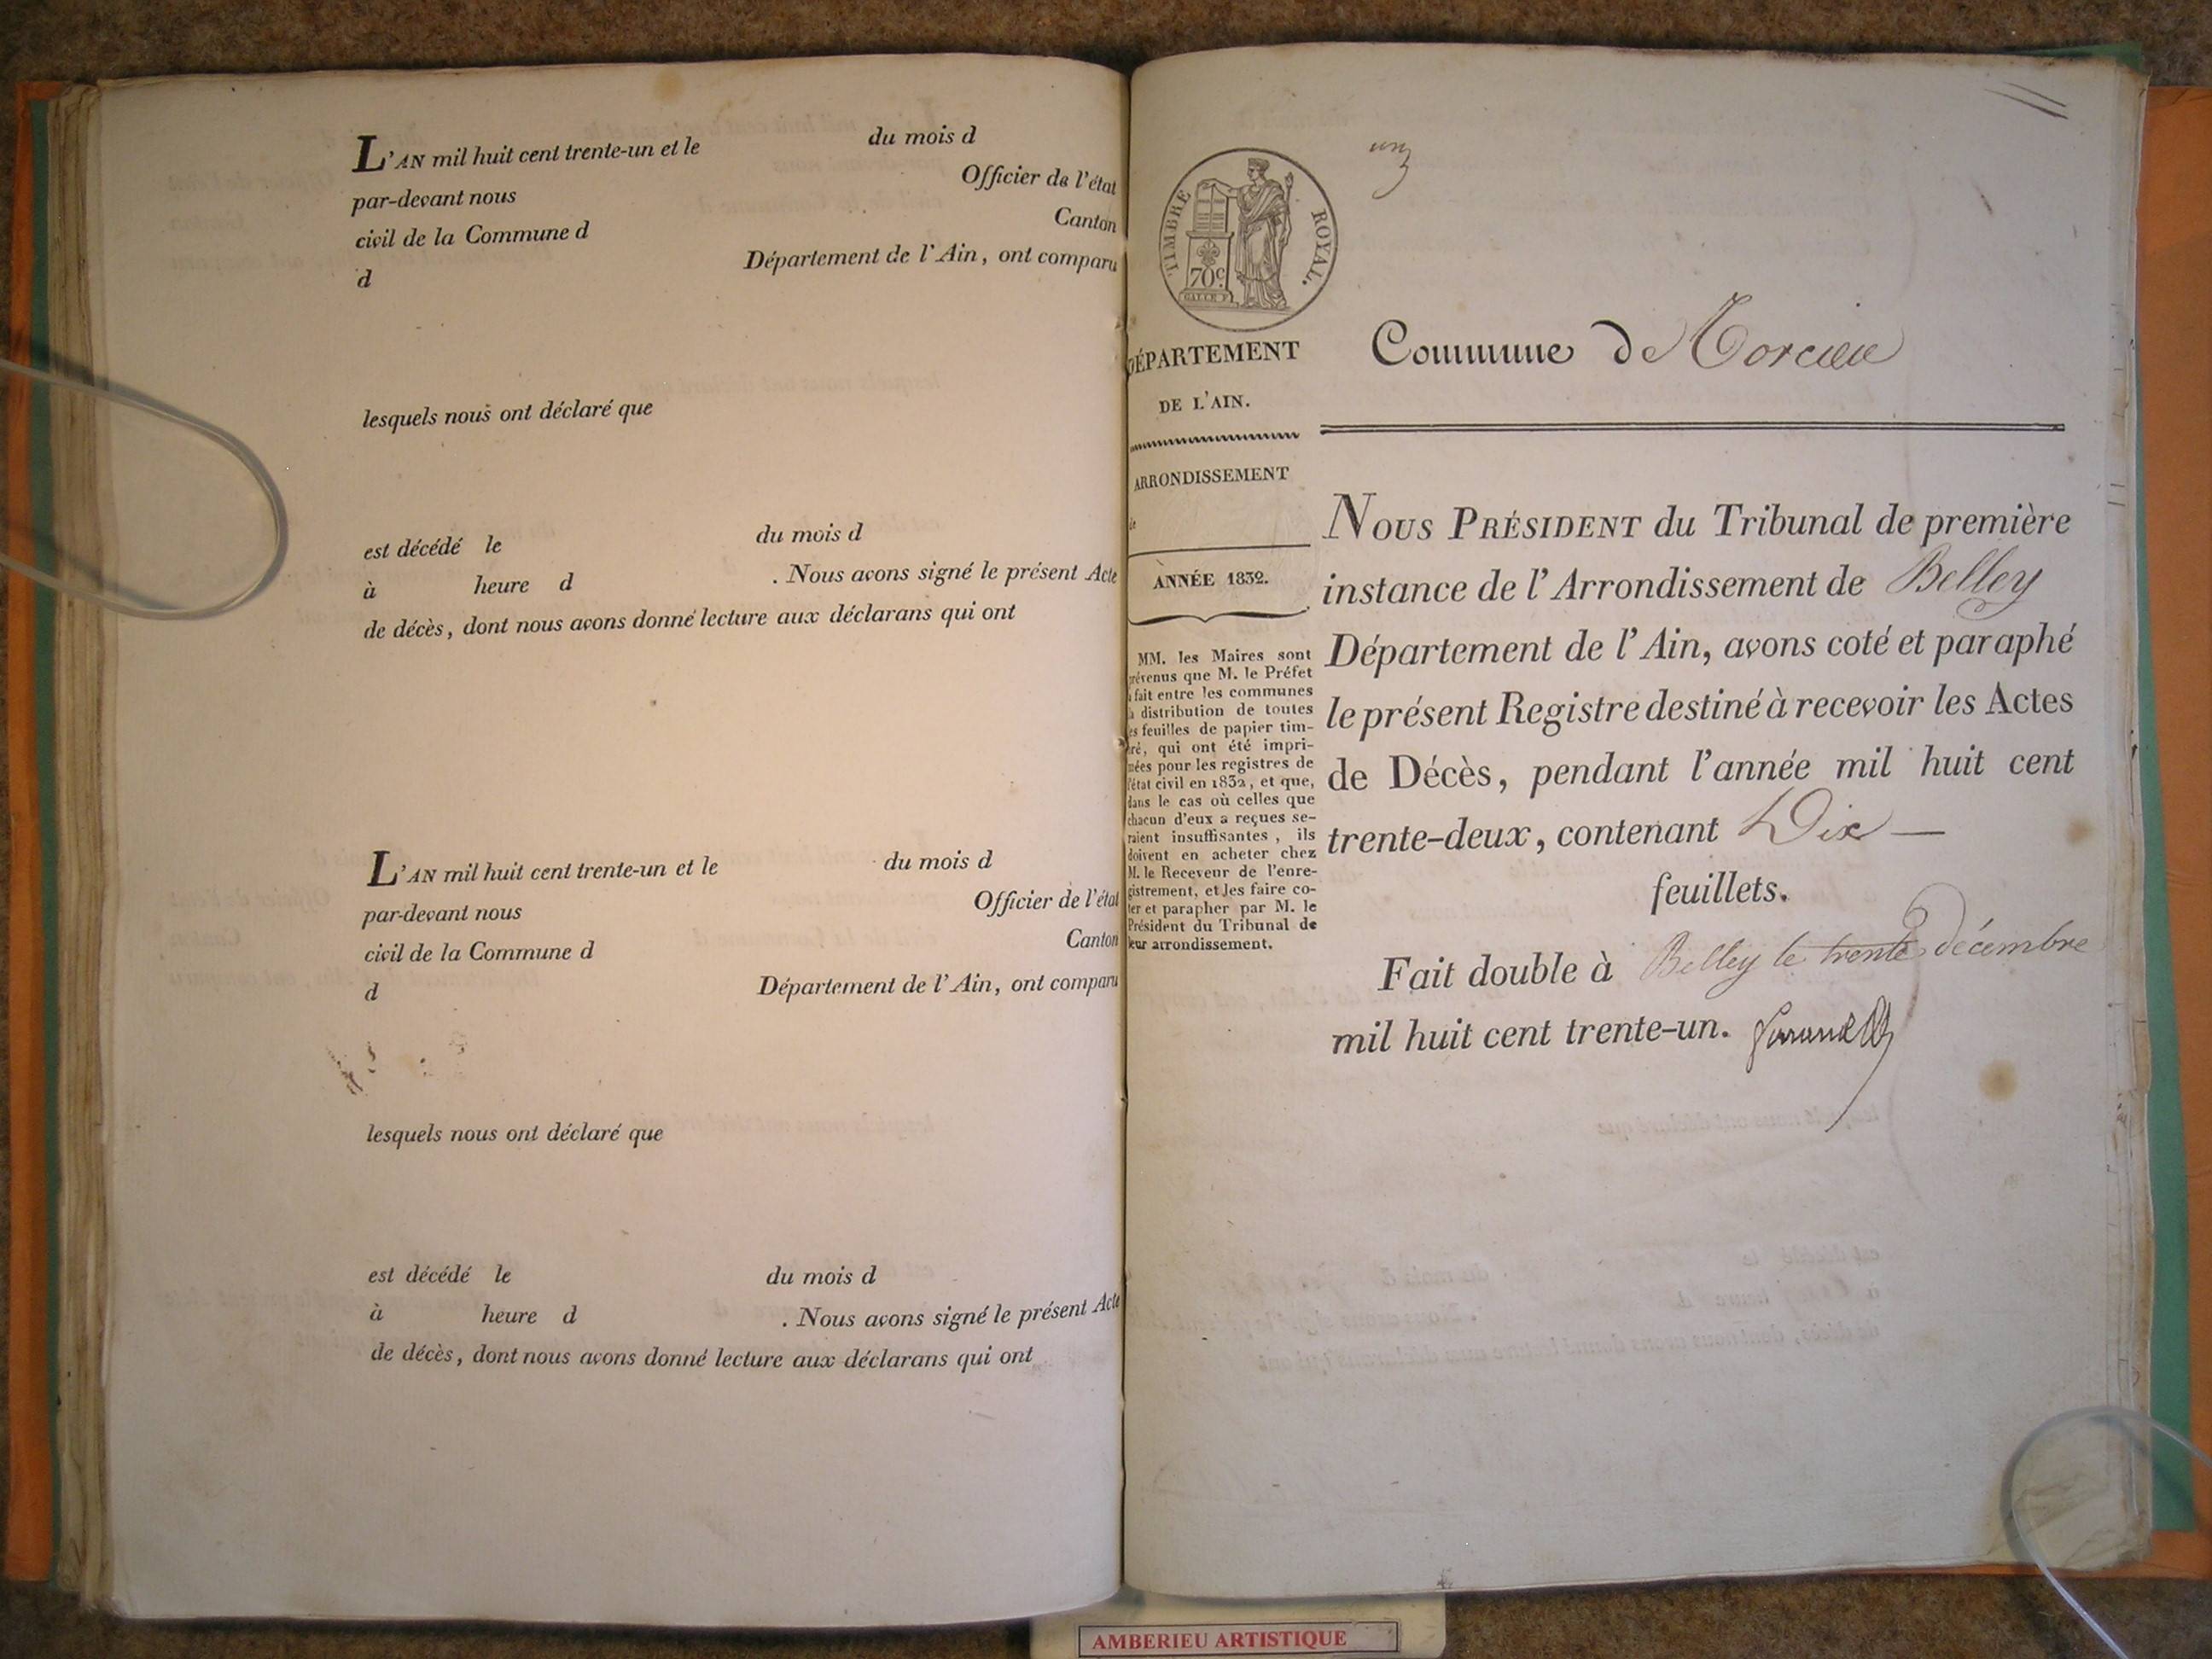 L'AN mil huit cent trente-un et le du mois d
par-devant nous Officier de l'état
civil de la Commune d Canton
d Département de l'Ain, ont comparu
lesquels nous ont déclaré que
est décédé le du mois d
à heure d . Nous avons signé le présent Acte
de décès, dont nous avons donné lecture aux déclarans qui ont
L'AN mil huit cent trente-un et le du mois d
par-devant nous Officier de l'état
civil de la Commune d Canton
d Département de l'Ain, ont comparu
lesquels nous ont déclaré que
est décédé le du mois d
à heure d . Nous avons signé le présent Acte
de décès, dont nous avons donné lecture aux déclarans qui ont
un
TIMBRE ROYAL.
70c.
DÉPARTEMENT
DE L'AIN.
ARRONDISSEMENT
de
ANNÉE 1832.
MM. les Maires sont
prévenus que M. le Préfet
a fait entre les communes
la distribution de toutes
les feuilles de papier tim-
bré, qui ont été impri-
mées pour les registres de
l'état civil en 1832, et que,
dans le cas où celles que
chacun d'eux a reçues se-
raient insuffisantes, ils
doivent en acheter chez
M. le Receveur de l'enre-
gistrement, et les faire co-
ter et parapher par M. le
Président du Tribunal de
leur arrondissement.
Commune de Torcieu
NOUS PRÉSIDENT du Tribunal de première
instance de l'Arrondissement de Belley
Département de l'Ain, avons coté et paraphé
le présent Registre destiné à recevoir les Actes
de Décès, pendant l'année mil huit cent
trente-deux, contenant Dix —
feuillets.
Fait double à Belley le trente décembre
mil huit cent trente-un.
AMBERIEU ARTISTIQUE